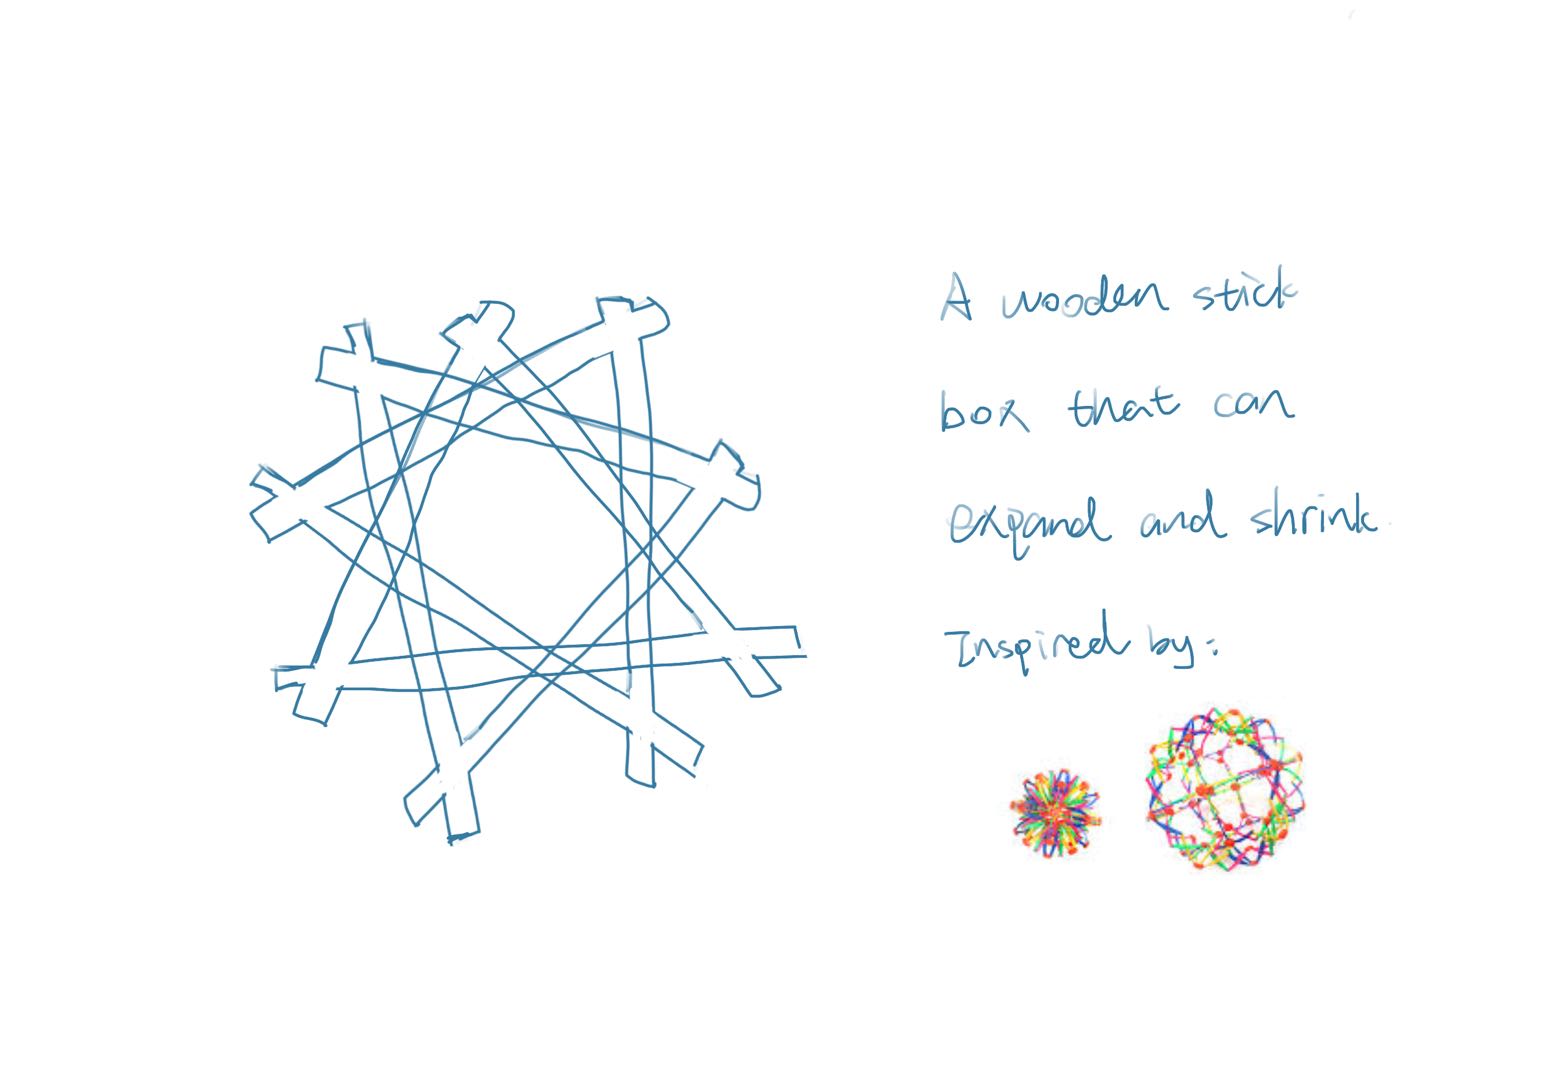 A wooden stick
box that can
expand and shrink
Inspired by: